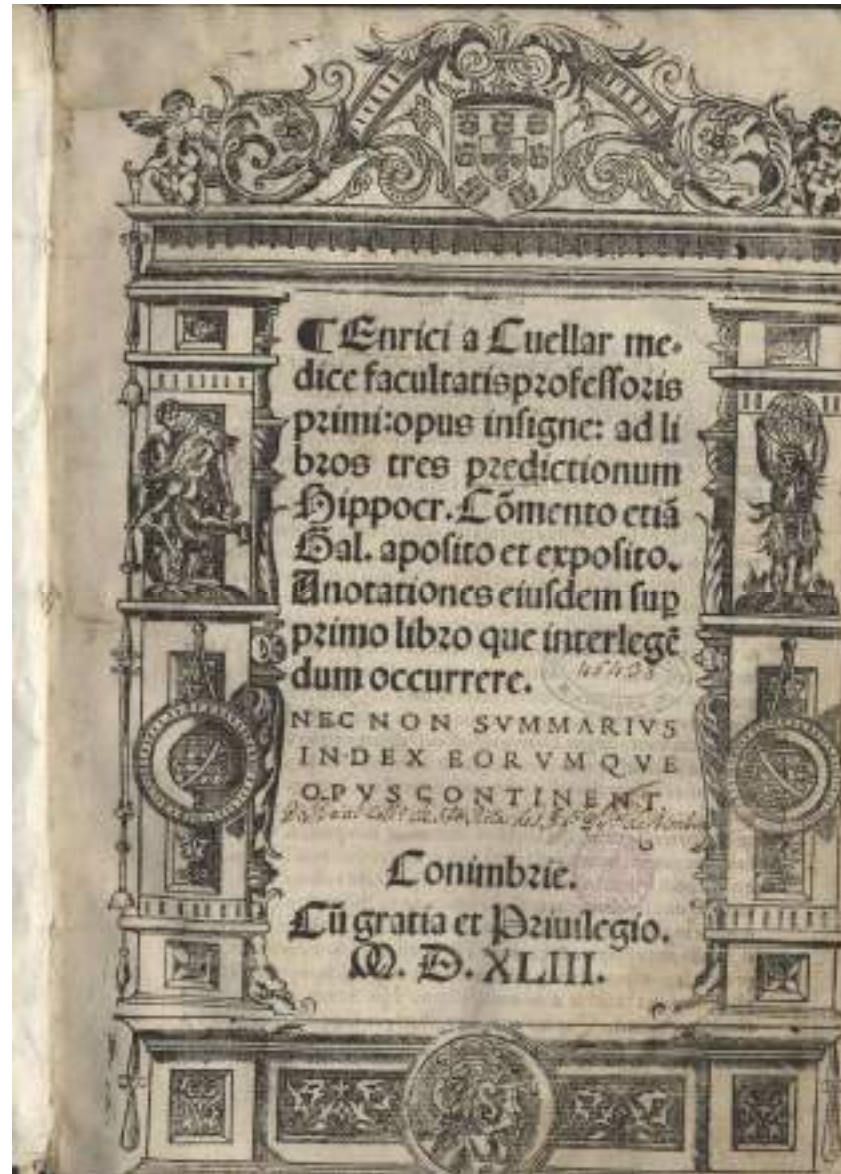 ¶ Enrici a Cuellar me-
dice facultatisprofessoris
primi:opus insigne: ad li
bros tres predictionum
Hippocr. Cõmento etiã
Gal. aposito et exposito.
Anotationes eiusdem sup
primo libro que interlegẽ
dum occurrere.
45498
NEC NON SVMMARIVS
INDEX EORVMQVE
OPVS CONTINENT
Conimbrie.
Cũ gratia et Priuilegio.
M. D. XLIII.